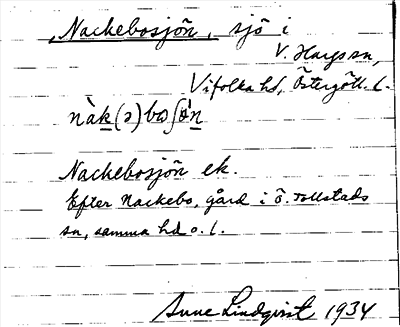 Nackebosjön, sjö i
V. Hargs sn,
Vifolka hd, Östergötl. l.
nàk(ɔ)bωʃø̀n
Nackebosjön ek.
Efter Nackebo, gård i Ö. Tollstads
sn, samma hd o. l.
Sune Lindqvist 1934